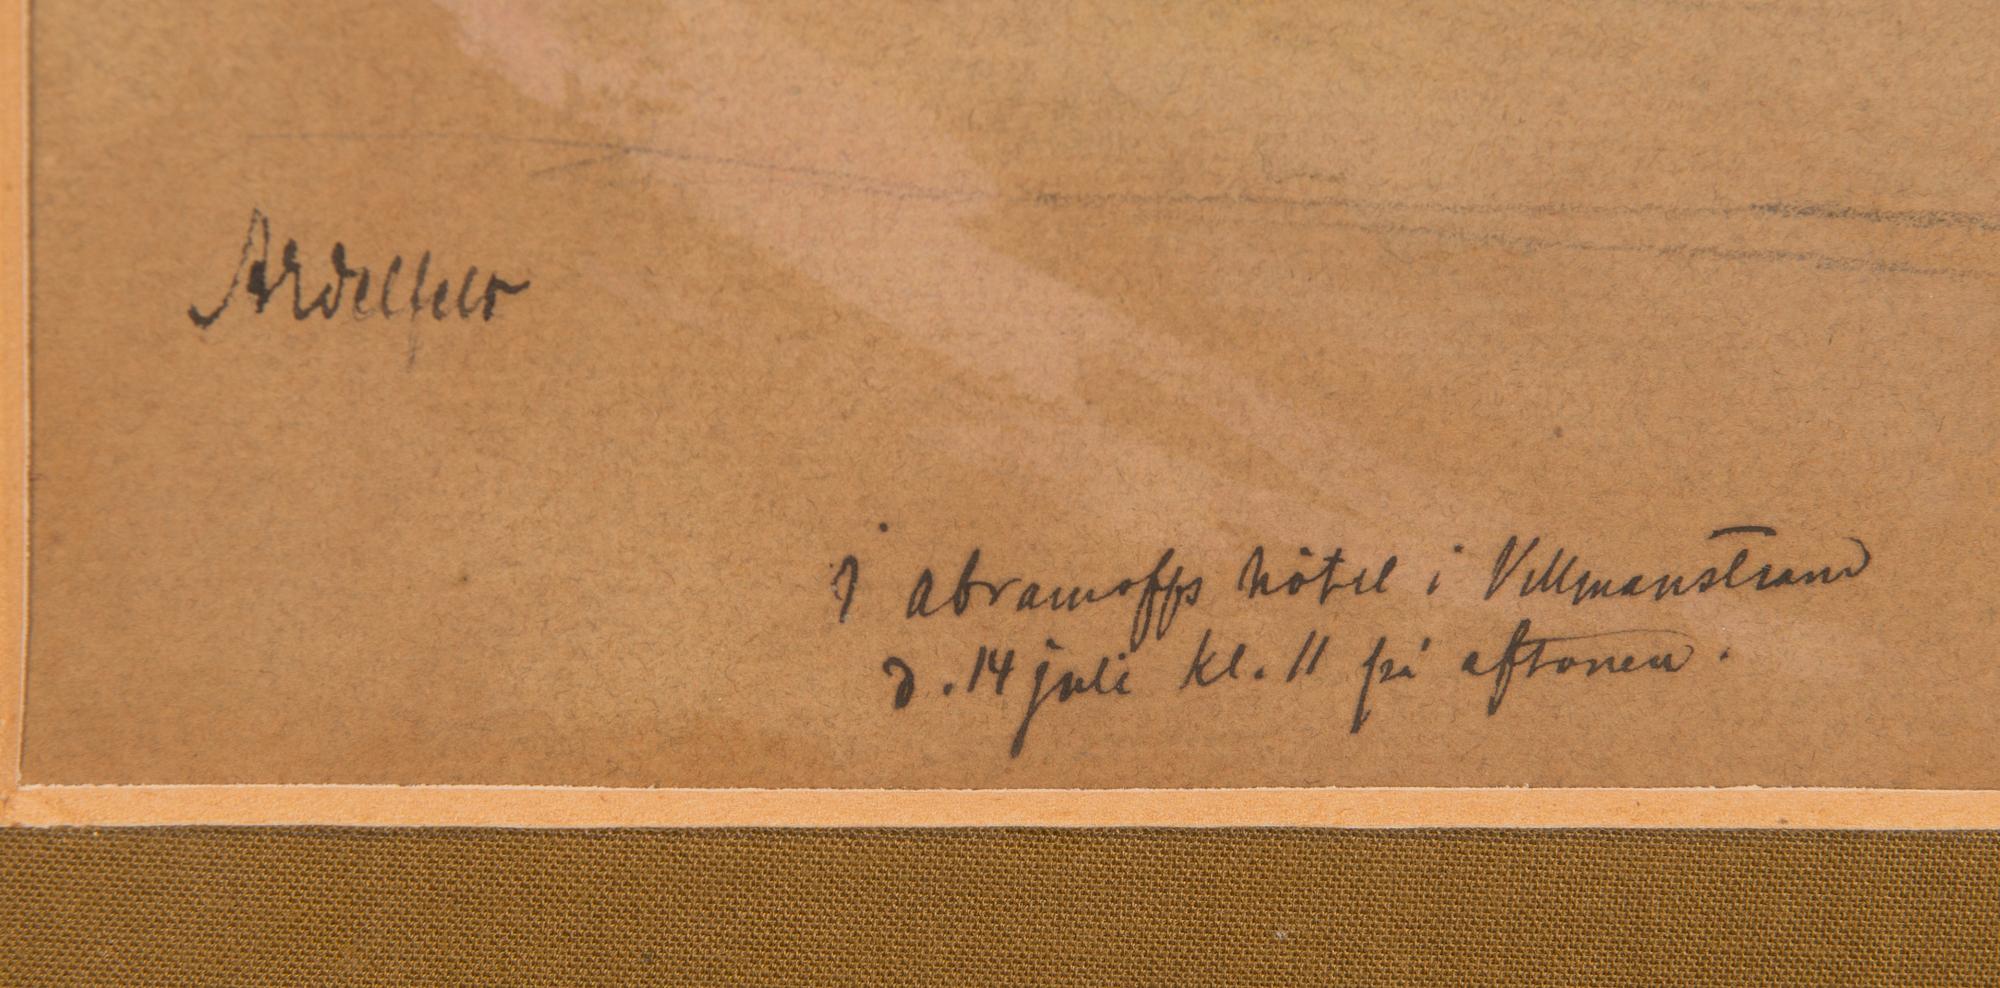 AEdelfelt
I Abramoffs hôtel i Villmanstrand
d. 14 juli kl. 11 på aftonen.